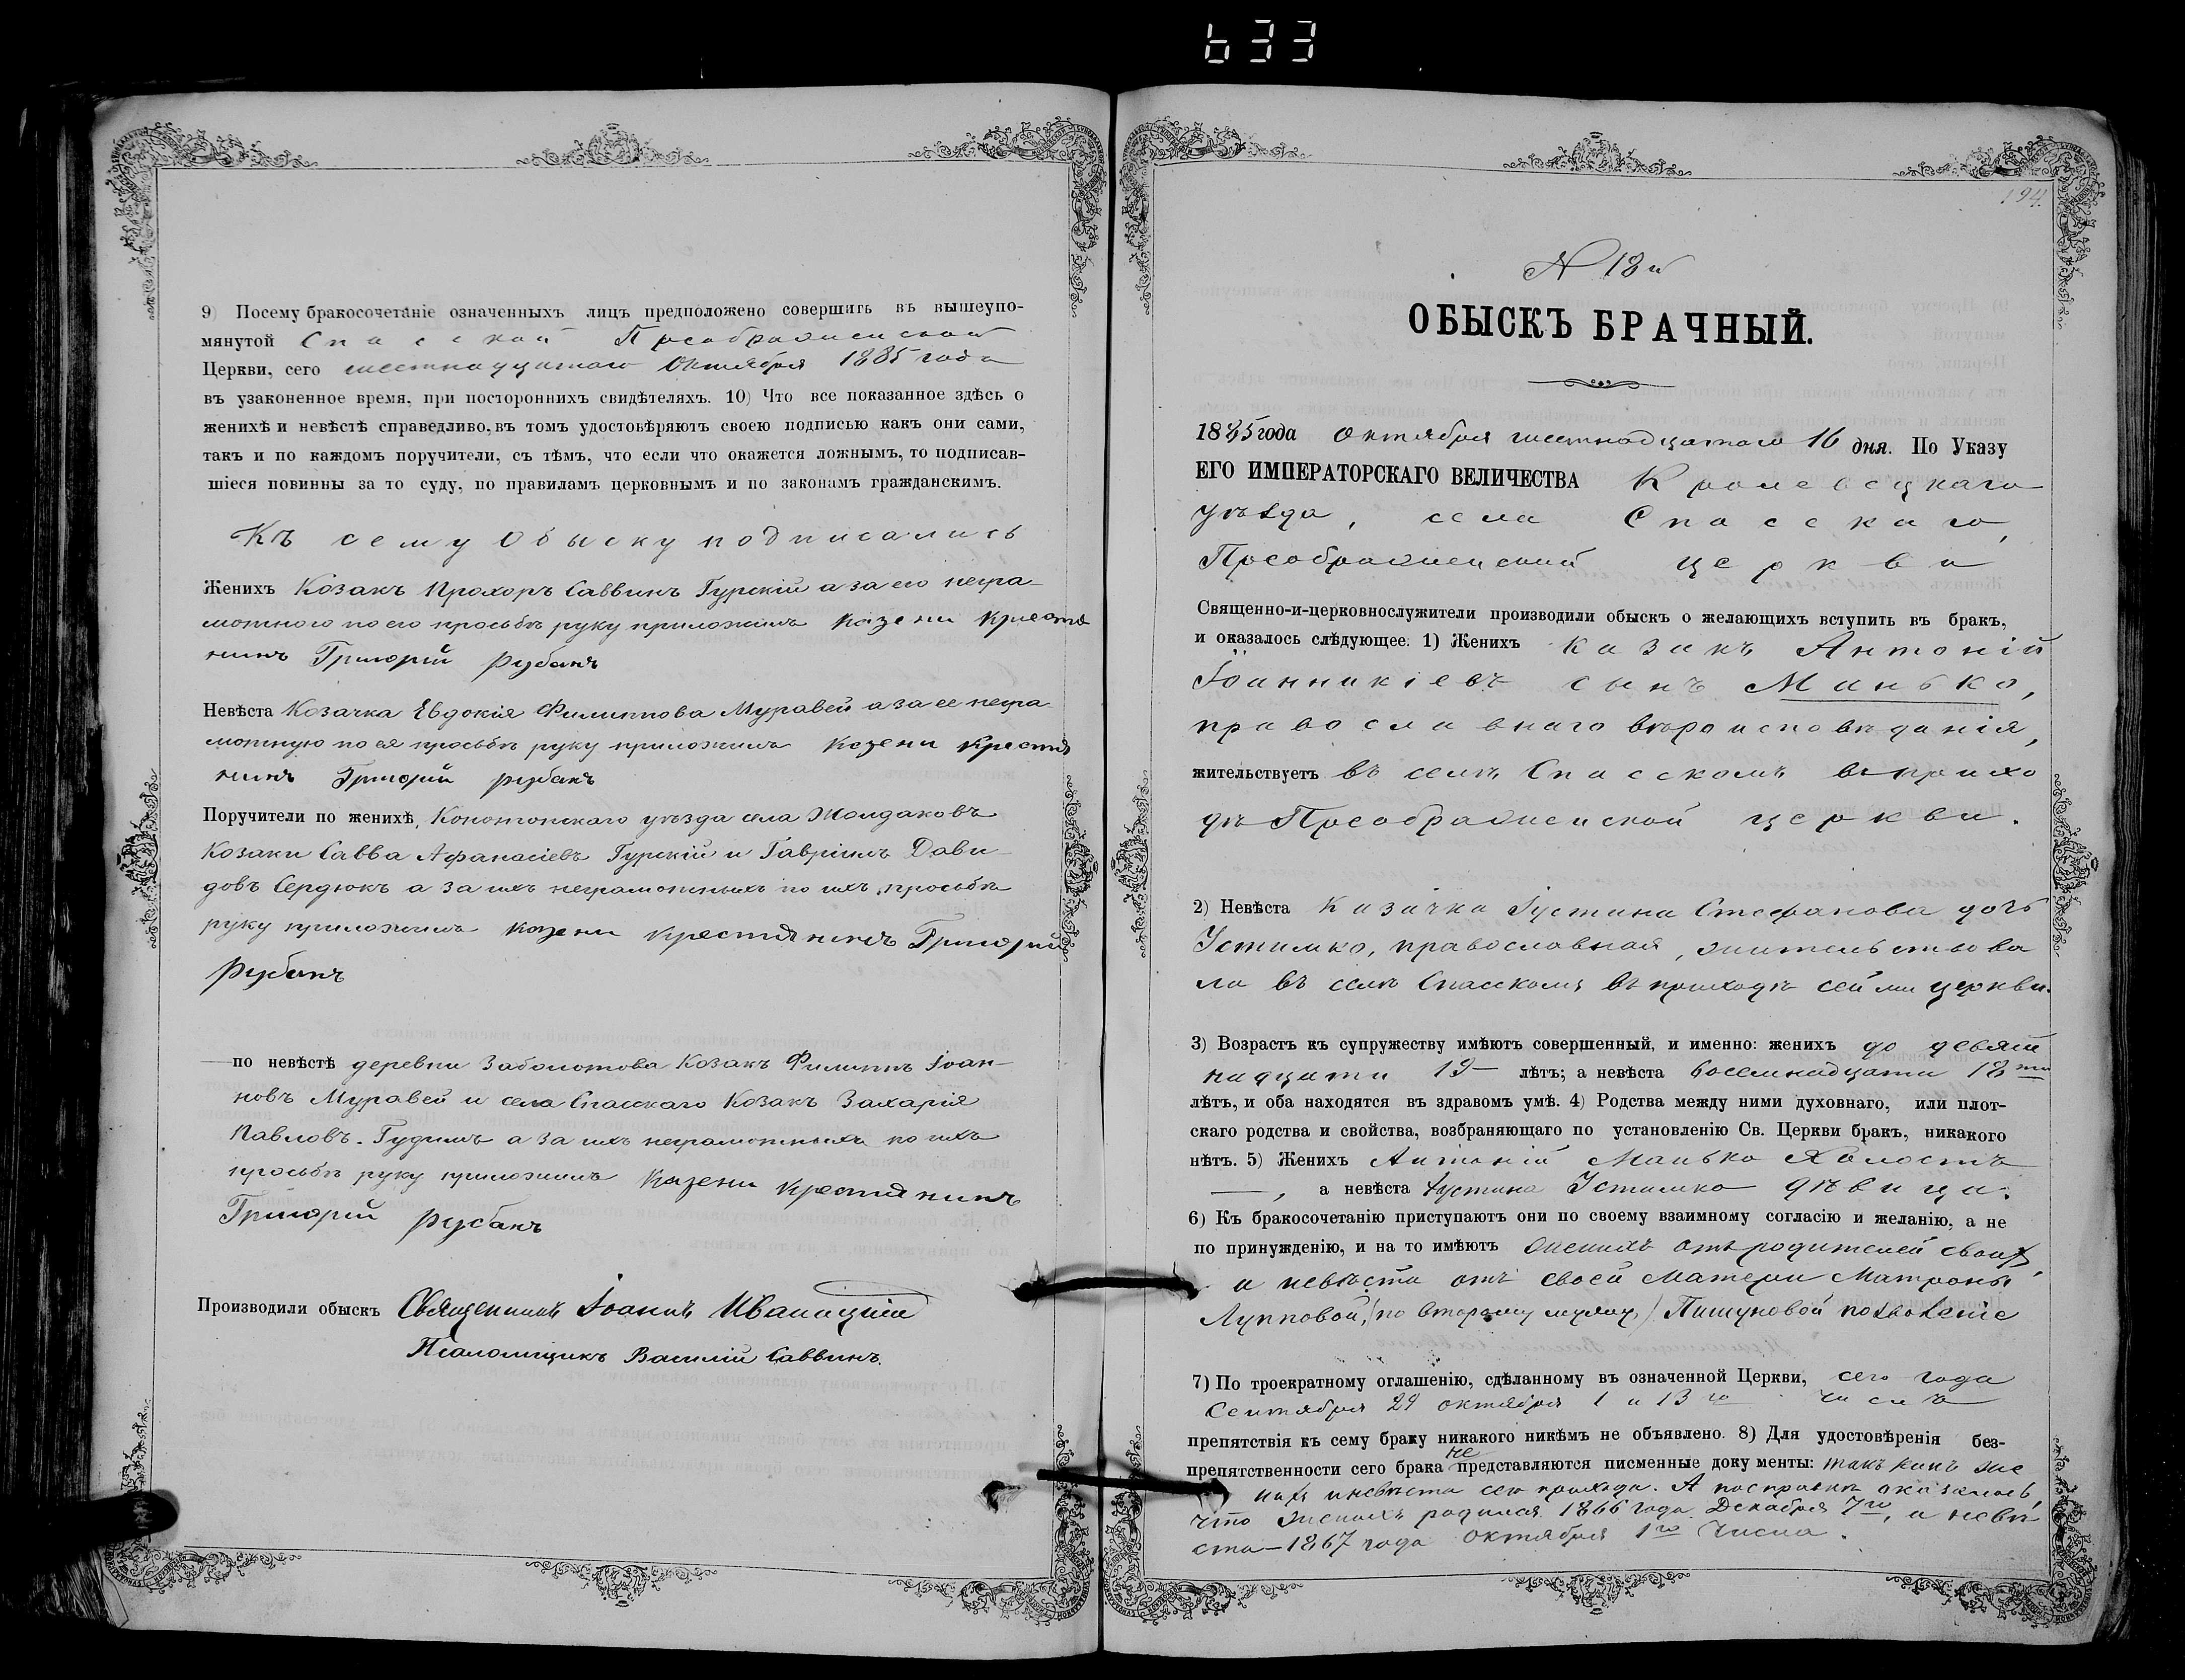 633
9) Посему бракосочетаніе означенныхъ лицъ предположено совершить въ вышеупо-
мянутой Спасской Преображенской
Церкви, сего шестнадцатаго Октября 1885 года
въ узаконенное время, при постороннихъ свидѣтеляхъ. 10) Что все показанное здѣсь о
женихѣ и невѣстѣ справедливо, въ томъ удостовѣряютъ своею подписью какъ они сами,
такъ и по каждомъ поручители, съ тѣмъ, что если что окажется ложнымъ, то подписав-
шіеся повинны за то суду, по правиламъ церковнымъ и по законамъ гражданскимъ.
Къ сему Обыску подписались
Женихъ Козакъ Прохоръ Саввинъ Гурскій а за его негра-
мотного по его просьбѣ руку приложилъ казени крестя
нинъ Григорій Рубанъ
Невѣста Козачка Евдокія Филиппова Муравей а за ее негра
мотную по ея просьбѣ руку приложилъ казени крестя
нинъ Григорій рубанъ
Поручители по женихѣ, Конотопскаго уѣзда села Жолдаковъ
Козаки Савва Афанасіевъ Гурскій и Гавріилъ Дави-
довъ Сердюкъ а за ихъ неграмотныхъ по ихъ просьбѣ
руку приложилъ казени крестянинъ Григорій
Рубанъ
по невѣстѣ деревни Заболотова Козакъ Филиппъ Іоан-
новъ Муравей и села Спасскаго Козакъ Захарія
Павловъ Гудимъ а за ихъ неграмотныхъ по ихъ
просьбѣ руку приложилъ казени крестянинъ
Григорій рубанъ
Производили обыскъ Священникъ Іоаннъ Иваницкій
Псаломщикъ Василій Саввинъ.
194
N 18й
ОБЫСКЪ БРАЧНЫЙ.
1885 года Октября шестнадцатаго 16 дня. По Указу
ЕГО ИМПЕРАТОРСКАГО ВЕЛИЧЕСТВА Кролевецкаго
уѣзда, села Спасскаго,
Преображенской церкви
Священно-и-церковнослужители производили обыскъ о желающихъ вступить въ бракъ,
и оказалось слѣдующее. 1) Женихъ казакъ Антоній
Іоанникіевъ сынъ Манько,
православнаго вѣроисповѣданія,
жительствуетъ въ селѣ Спасскомъ въ прихо
дѣ Преображенской церкви.
2) Невѣста казачка Іустина Стефанова дочь
Устимко, православная, жительствова
ла въ селѣ Спасскомъ въ приходѣ сей же церкви.
3) Возрастъ къ супружеству имѣютъ совершенный, и именно: женихъ до девят
надцати 19 лѣтъ; а невѣста восемнадцати 18ти
лѣтъ, и оба находятся въ здравомъ умѣ. 4) Родства между ними духовнаго, или плот-
скаго родства и свойства, возбраняющаго по установленію Св. Церкви бракъ, никакого
нѣтъ. 5) Женихъ Антоній Манько холостъ
, а невѣста Іустина Устимко дѣвица.
6) Къ бракосочетанію приступаютъ они по своему взаимному согласію и желанію, а не
по принужденію, и на то имѣютъ женихъ отъ родителей своихъ,
а невѣста отъ своей матери Матроны
Лупповой, (по второму мужу) Пишуновой позволеніе
7) По троекратному оглашенію, сдѣланному въ означенной Церкви, сего года
Сентября 29 октября 1 и 13го числъ
препятствія къ сему браку никакого никѣмъ не объявлено. 8) Для удостовѣренія без-
препятственности сего брака не представляются писменные документы: такъ какъ же
нихъ и невѣста сего прихода. А по справкѣ оказалось,
что женихъ родился 1866 года Декабря 7го, а невѣ
ста - 1867 года октября 1го числа.